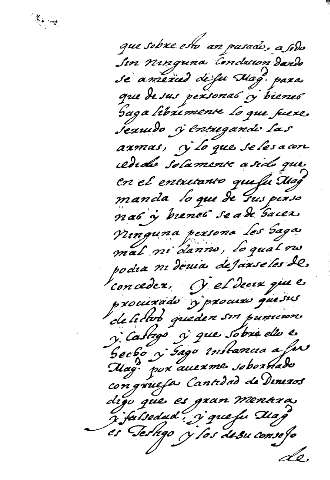 que sobre esto an pasado, a sido
sin ninguna condicion dando
se a merced de su Magd. para
que de sus personas y bienes
haga libremente lo que fuere
servido y entregando las
armas, y lo que se les a con
cedido solamente a sido que
en el entretanto que su Magd
manda lo que de sus perso
nas y bienes se a de hacer
ninguna persona les haga
mal ni danno, lo qual no
podia ni devia dejarseles de
conceder. Y el decir que e
procurado y procuro que sus
delictos queden sin punicion
y castigo y que sobre ello e
hecho y hago instancia a su
Magd. por averme sobornado
con gruesa cantidad de dineros
digo que es gran mentira
y falsedad: y que su Magd
es testigo y los de su consejo
de